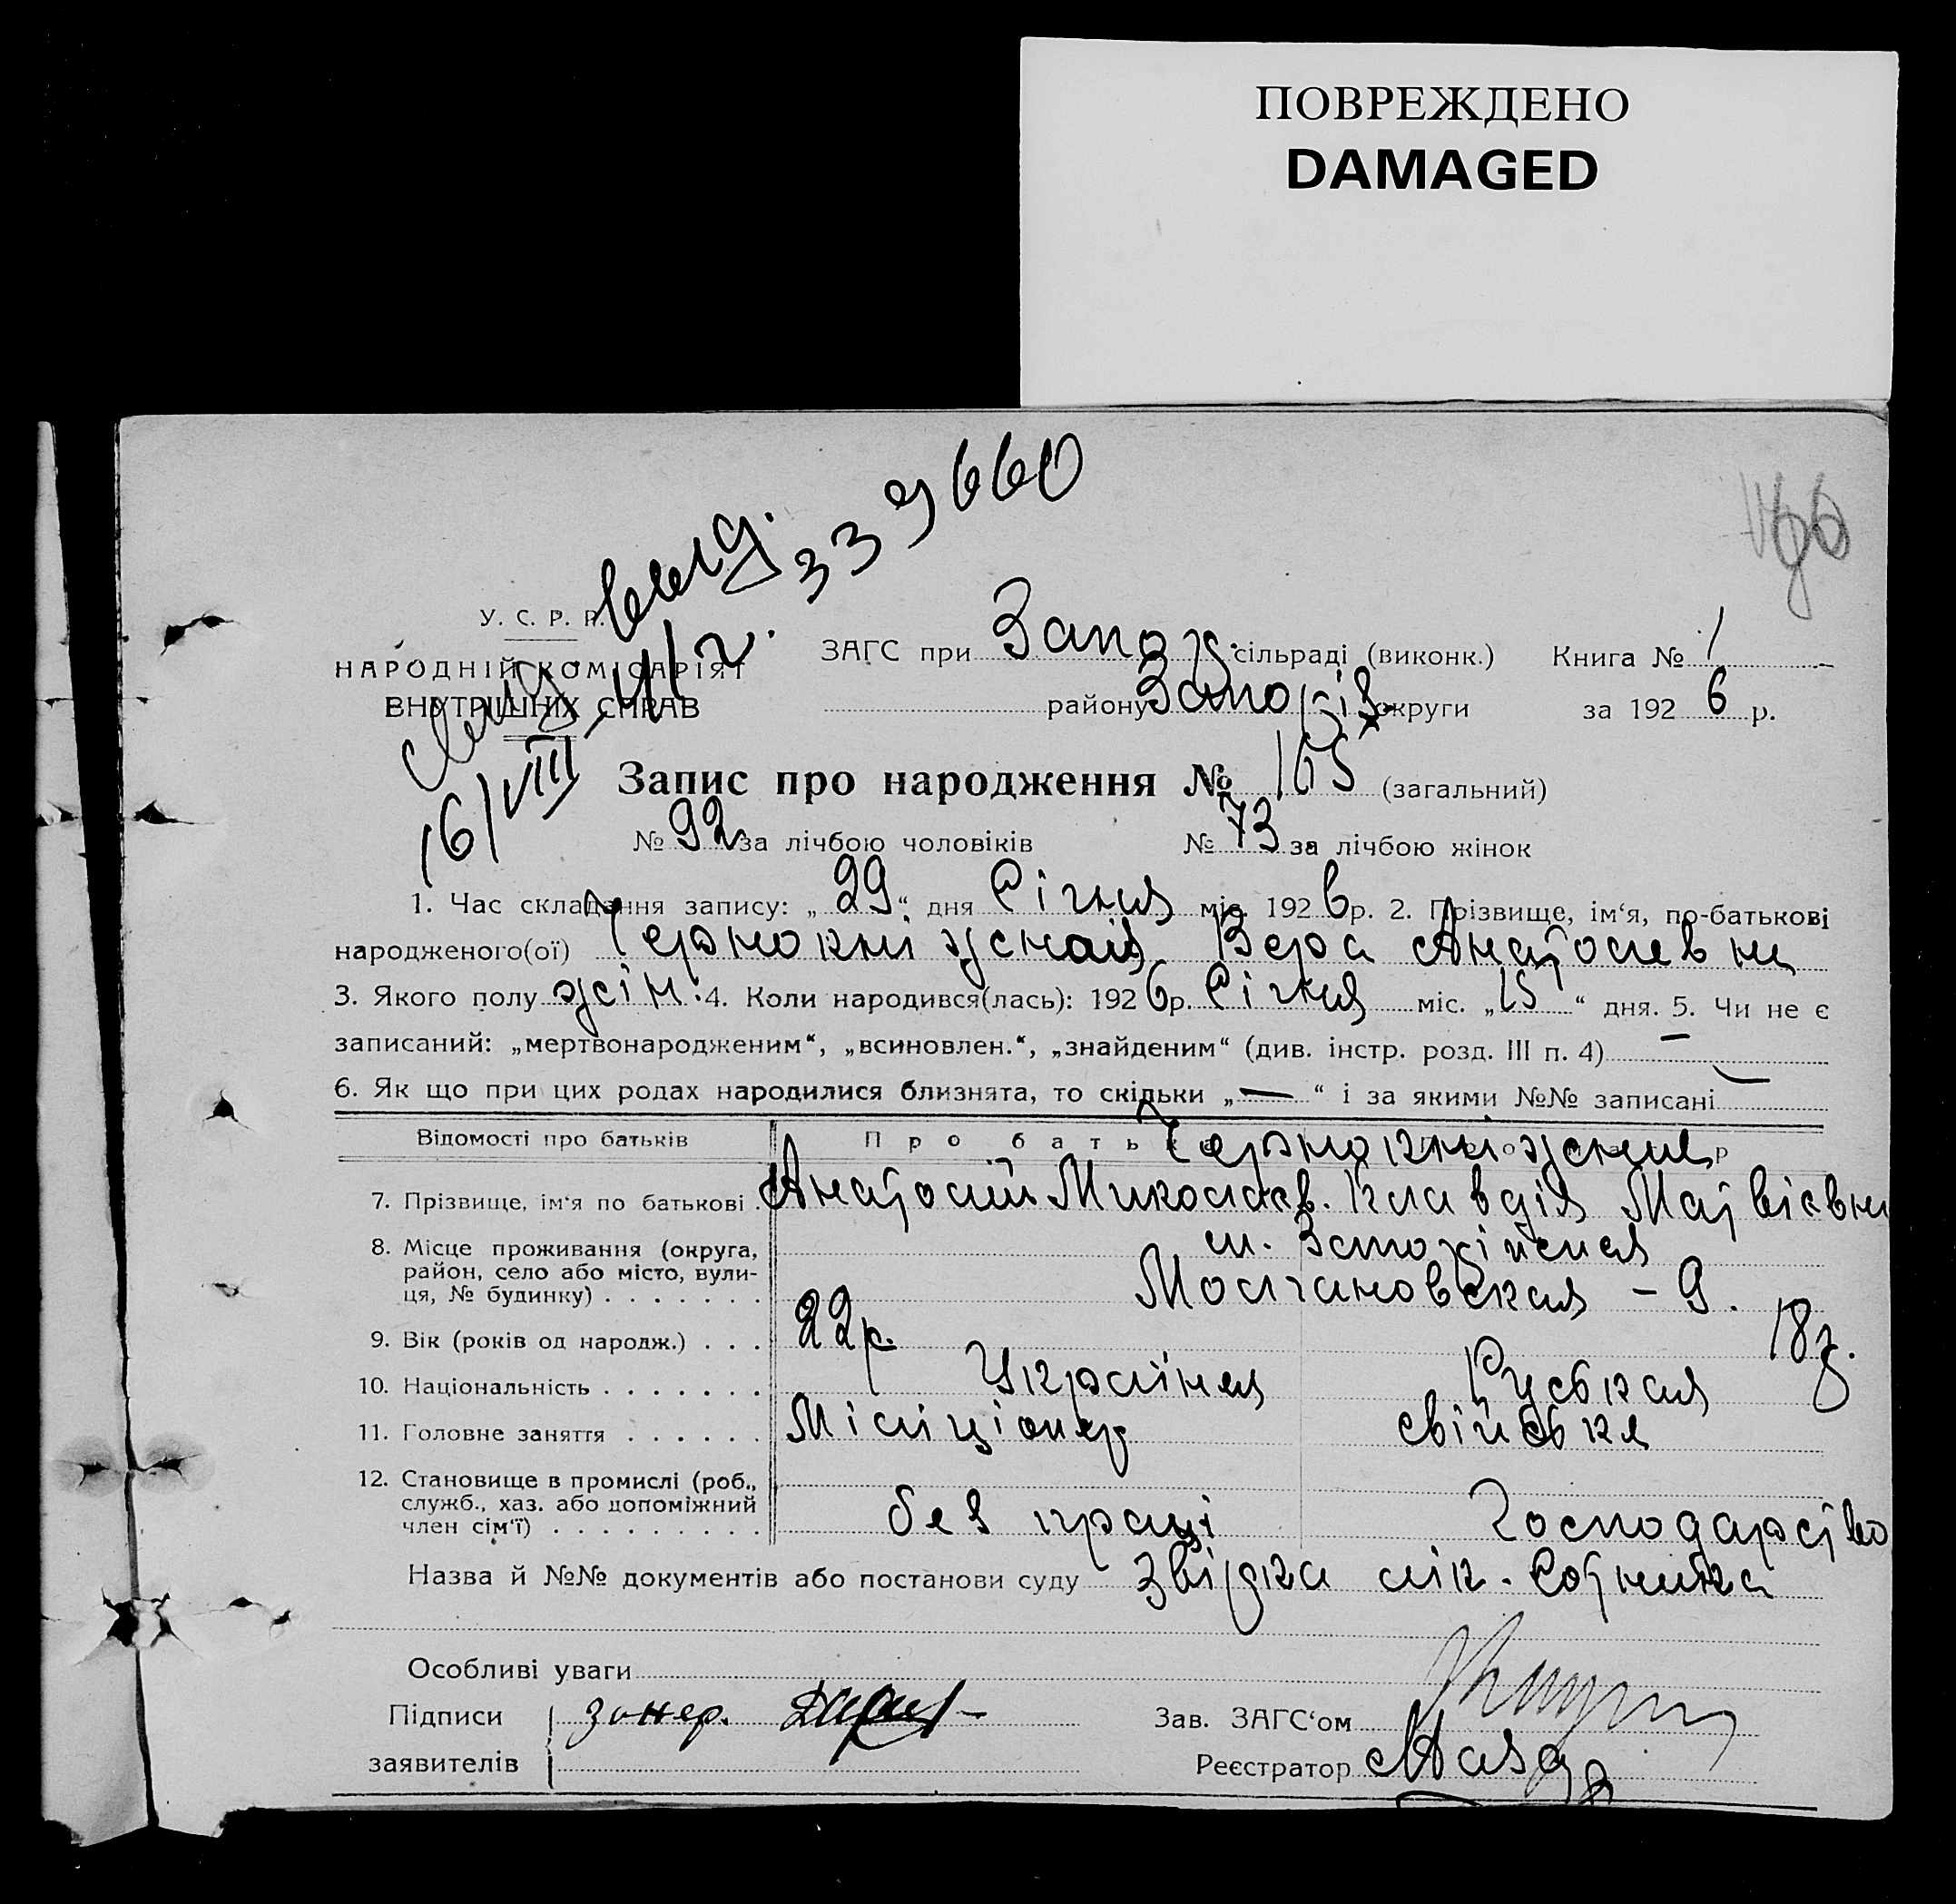 ПОВРЕЖДЕНО
DAMAGED
339660
У. С. Р. Р.
НАРОДНІЙ КОМІСАРІЯТ
ВНУТРІШНІХ СПРАВ
16/VIII
ЗАГС при Запоріж. сільраді (виконк.) Книга № 1
району Запоріз. округи за 1926 р.
Запис про народження № 165 (загальний)
№ 92 за лічбою чоловіків № 73 за лічбою жінок
1. Час складання запису: „29“ дня Січня міс. 1926 р. 2. Прізвище, ім‘я, по-батькові
народженого(ої) Чернокніжная Вера Анатолевна
3. Якого полу жін. 4. Коли народився(лась): 1926 р. Січня міс. „15“ дня. 5. Чи не є
записаний: „мертвонародженим“, „всиновлен.“, „знайденим“ (див. інстр. розд. III п. 4) —
6. Як що при цих родах народилися близнята, то скільки „—“ і за якими №№ записані —
Відомості про батьків Про батька
Чернокніжние
7. Прізвище, ім‘я по батькові . Анатолій Миколаєв. Клавдія Матвієвна
8. Місце проживання (округа,
район, село або місто, вули-
ця, № будинку) . . . . . . .
м.
Молчановская – 9.
9. Вік (років од народж.) . . . 22 р. 18 р.
10. Національність . . . . . . . Україн Руськая
11. Головне заняття . . . . . . Міліціонер свійське
12. Становище в промислі (роб.,
служб., хаз. або допоміжний
член сім‘ї) . . . . . . . . .
без праці Господарство
Назва й №№ документів або постанови суду Звідка лік. Сотника
Особливі уваги
Підписи
заявителів
Зав. ЗАГС‘ом
Реєстратор